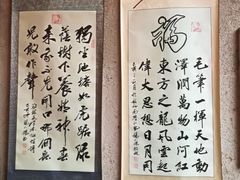 獨坐池塘如虎踞
蔭樹下養精神春
來我不先開口那個蟲
兒敢作聲
福
毛筆一揮天地動
澤潤萬物山河紅
東方之龍風雲起
偉大思想日月同